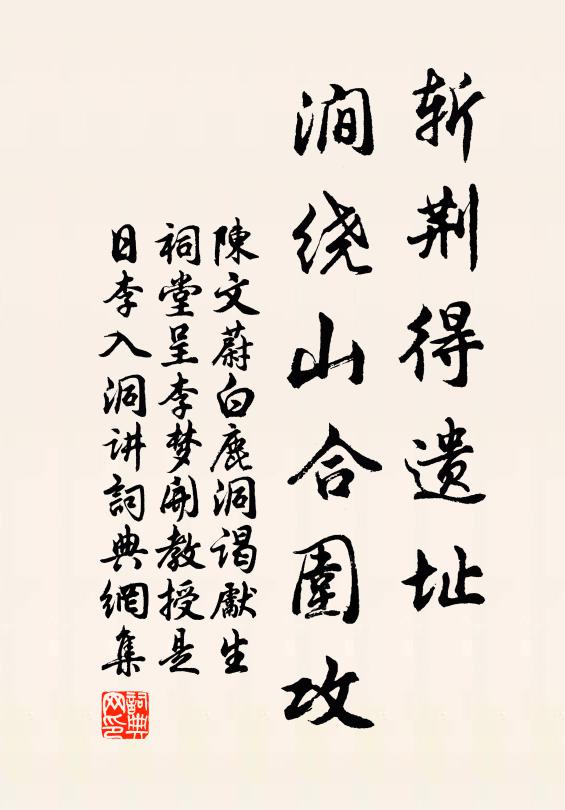 斩荆得遗址
涧绕山合围攻
陳文蔚白鹿洞谒獻生
祠堂呈李梦開教授是
日李入洞讲詞典網集
詞典网印